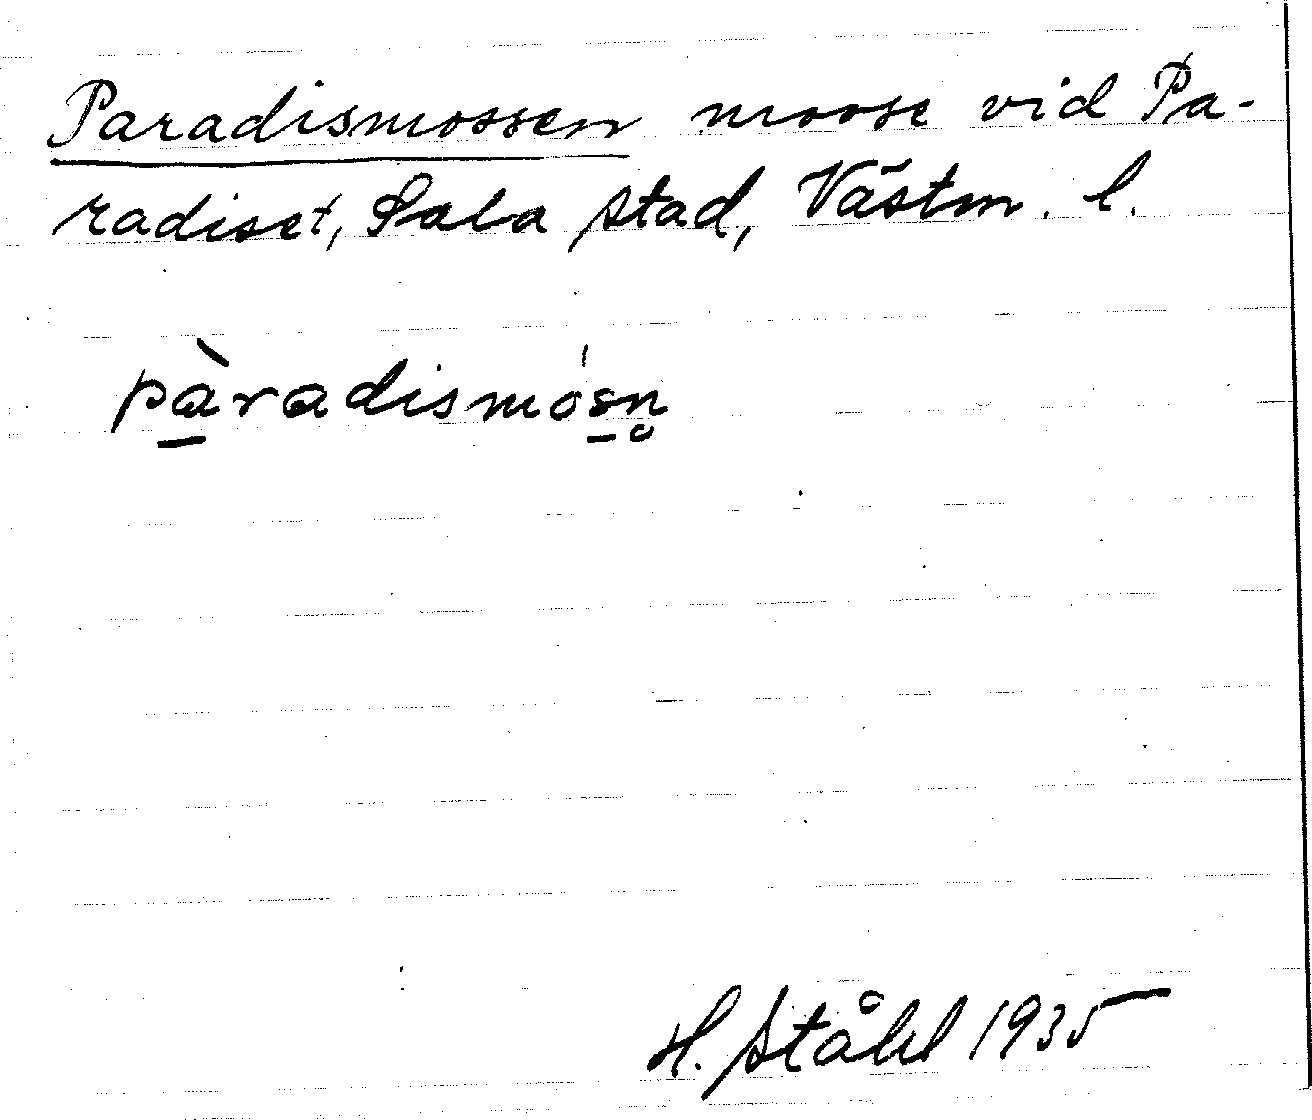 Paradismossen mosse vid Pa-
radiset, Sala stad, Västm. l.
pà̱radismós̱n̥
H. Ståhl 1935